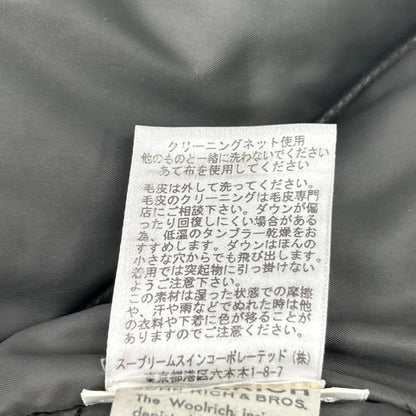 クリーニングネット使用
他のものと一緒に洗わないでください
あて布を使用してください
毛皮は外して洗ってください。
毛皮のクリーニングは毛皮専門
店にご相談下さい。ダウンが偏
ったり回復しにくい場合がある
為、低温のタンブラー乾燥をお
すすめします。ダウンはほんの
小さな穴からでも飛び出します。
着用では突起物に引っ掛けない
ようご注意下さい。
この素材は湿った状態での摩擦
や、汗や雨などでぬれた時は他
の衣料や下着に色が移ることが
ありますのでご注意ください。
スープリームスインコーポレーテッド(株)
東京都港区六本木1-8-7
RICH & BROS.
The Woolrich